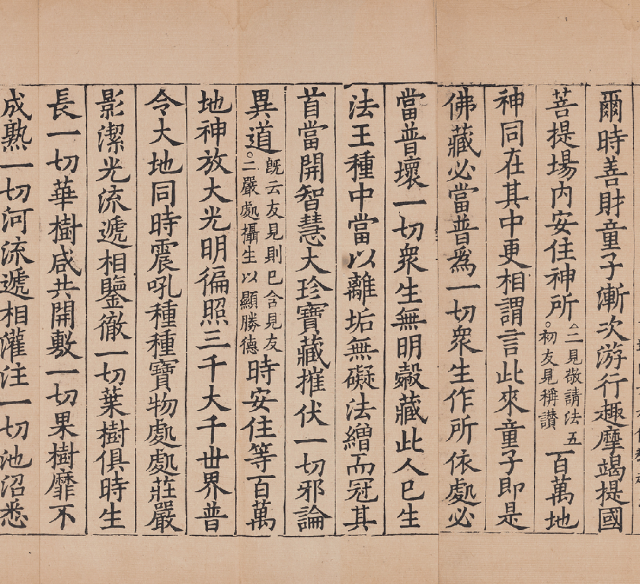 爾時善財童子漸次游行趣摩竭提國
菩提場內安住神所。二見敬請法五。初友見稱讚百萬地
神同在其中更相謂言此來童子即是
佛藏必當普為一切眾生作所依處必
當普壞一切眾生無明㲉藏此人已生
法王種中當以離垢無礙法繒而冠其
首當開智慧大珍寶藏摧伏一切邪論
異道。既云友見則已含見友二嚴處攝生以顯勝德時安住等百萬
地神放大光明徧照三千大千世界普
令大地同時震吼種種寶物處處莊嚴
影潔光流遞相鑒徹一切葉樹俱時生
長一切華樹咸共開敷一切果樹靡不
成熟一切河流遞相灌注一切池沼悉